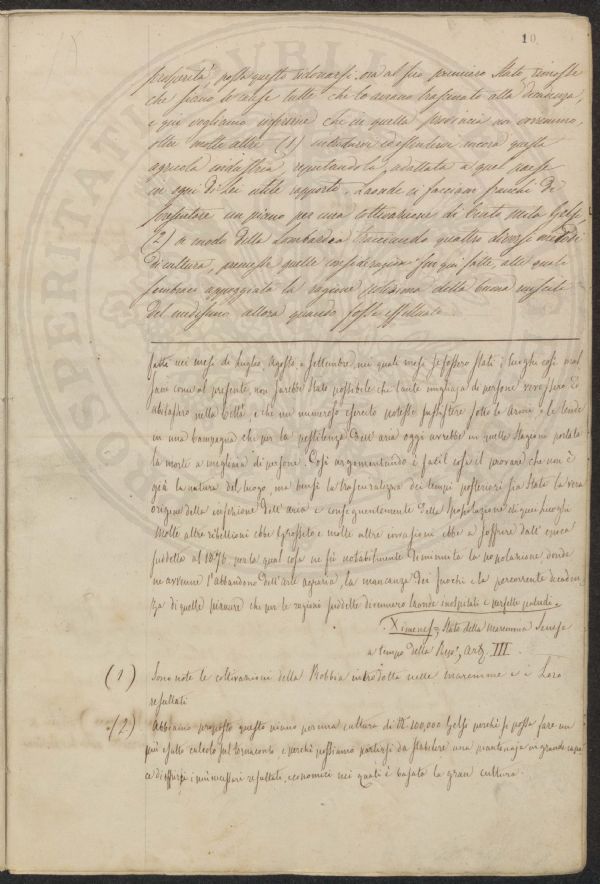 10
prosperità, possa questo ridonarsi ora al suo primiero Stato, rimosse
che siano le cause tutte che lo avevano trascinato alla decadenza,
e qui vogliamo inferirne che in quella Provincia noi vorremmo,
oltre molte altre (1) introdurre ed estendere ancora questa
agricola industria, reputandola adattata a quel paese
in ogni di lui utile rapporto. Laonde ci facciam franchi di
presentare un piano per una coltivazione di Cento mila Gelsi
(2) a modo della Lombardia tracciando quattro diversi metodi
di cultura, premesse quelle considerazioni fin qui fatte, alle quali
sembraci appoggiata la ragione della buona riuscita
del medesimo allora quando fosse effettuato
fatti nei mesi di Luglio, Agosto, e Settembre, nei quali mesi se fossero stati i luoghi così mal
sani come al presente, non sarebbe stato possibile che tante migliaja di persone
abitassero nelle Città, e che un numeroso esercito potesse sussistere sotto le armi e le tende
in una Campagna che per la pestilenza dell'aria oggi avrebbe in quelle Stagioni portata
la morte a migliaja di persone. Così argomentando è facil cosa il provare che non è
già la natura del luogo, ma bensì la trascuratezza dei tempi posteriori sia stata la vera
origine della infezione dell'aria e conseguentemente della spopolazione di quei luoghi
Molte altre ribellioni ebbe Grosseto e molte altre invasioni ebbe a soffrire dall'epoca
suddetta al per la qual cosa ne fù notabilmente diminuita la popolazione, donde
ne avvenne l'abbandono dell'arte agraria, la mancanza dei fuochi e la decaden
za di quelle pianure che per le ragioni suddette divennero lande inospitali e perfette paludi.
Ximenes, Stato della maremma Senese
a tempo della Rep.ª, art. III.
(1) Sono note le coltivazioni della Robbia introdotta nelle maremme e i Loro
resultati
(2) Abbiamo proposto questo piano per una cultura di N.º 100,000 Gelsi perchè si possa fare un
più esatto calcolo sul tornaconto e perchè possiamo partirsi da stabilire una piantonaja in grande
resultati economici nei quali è basata la gran cultura.